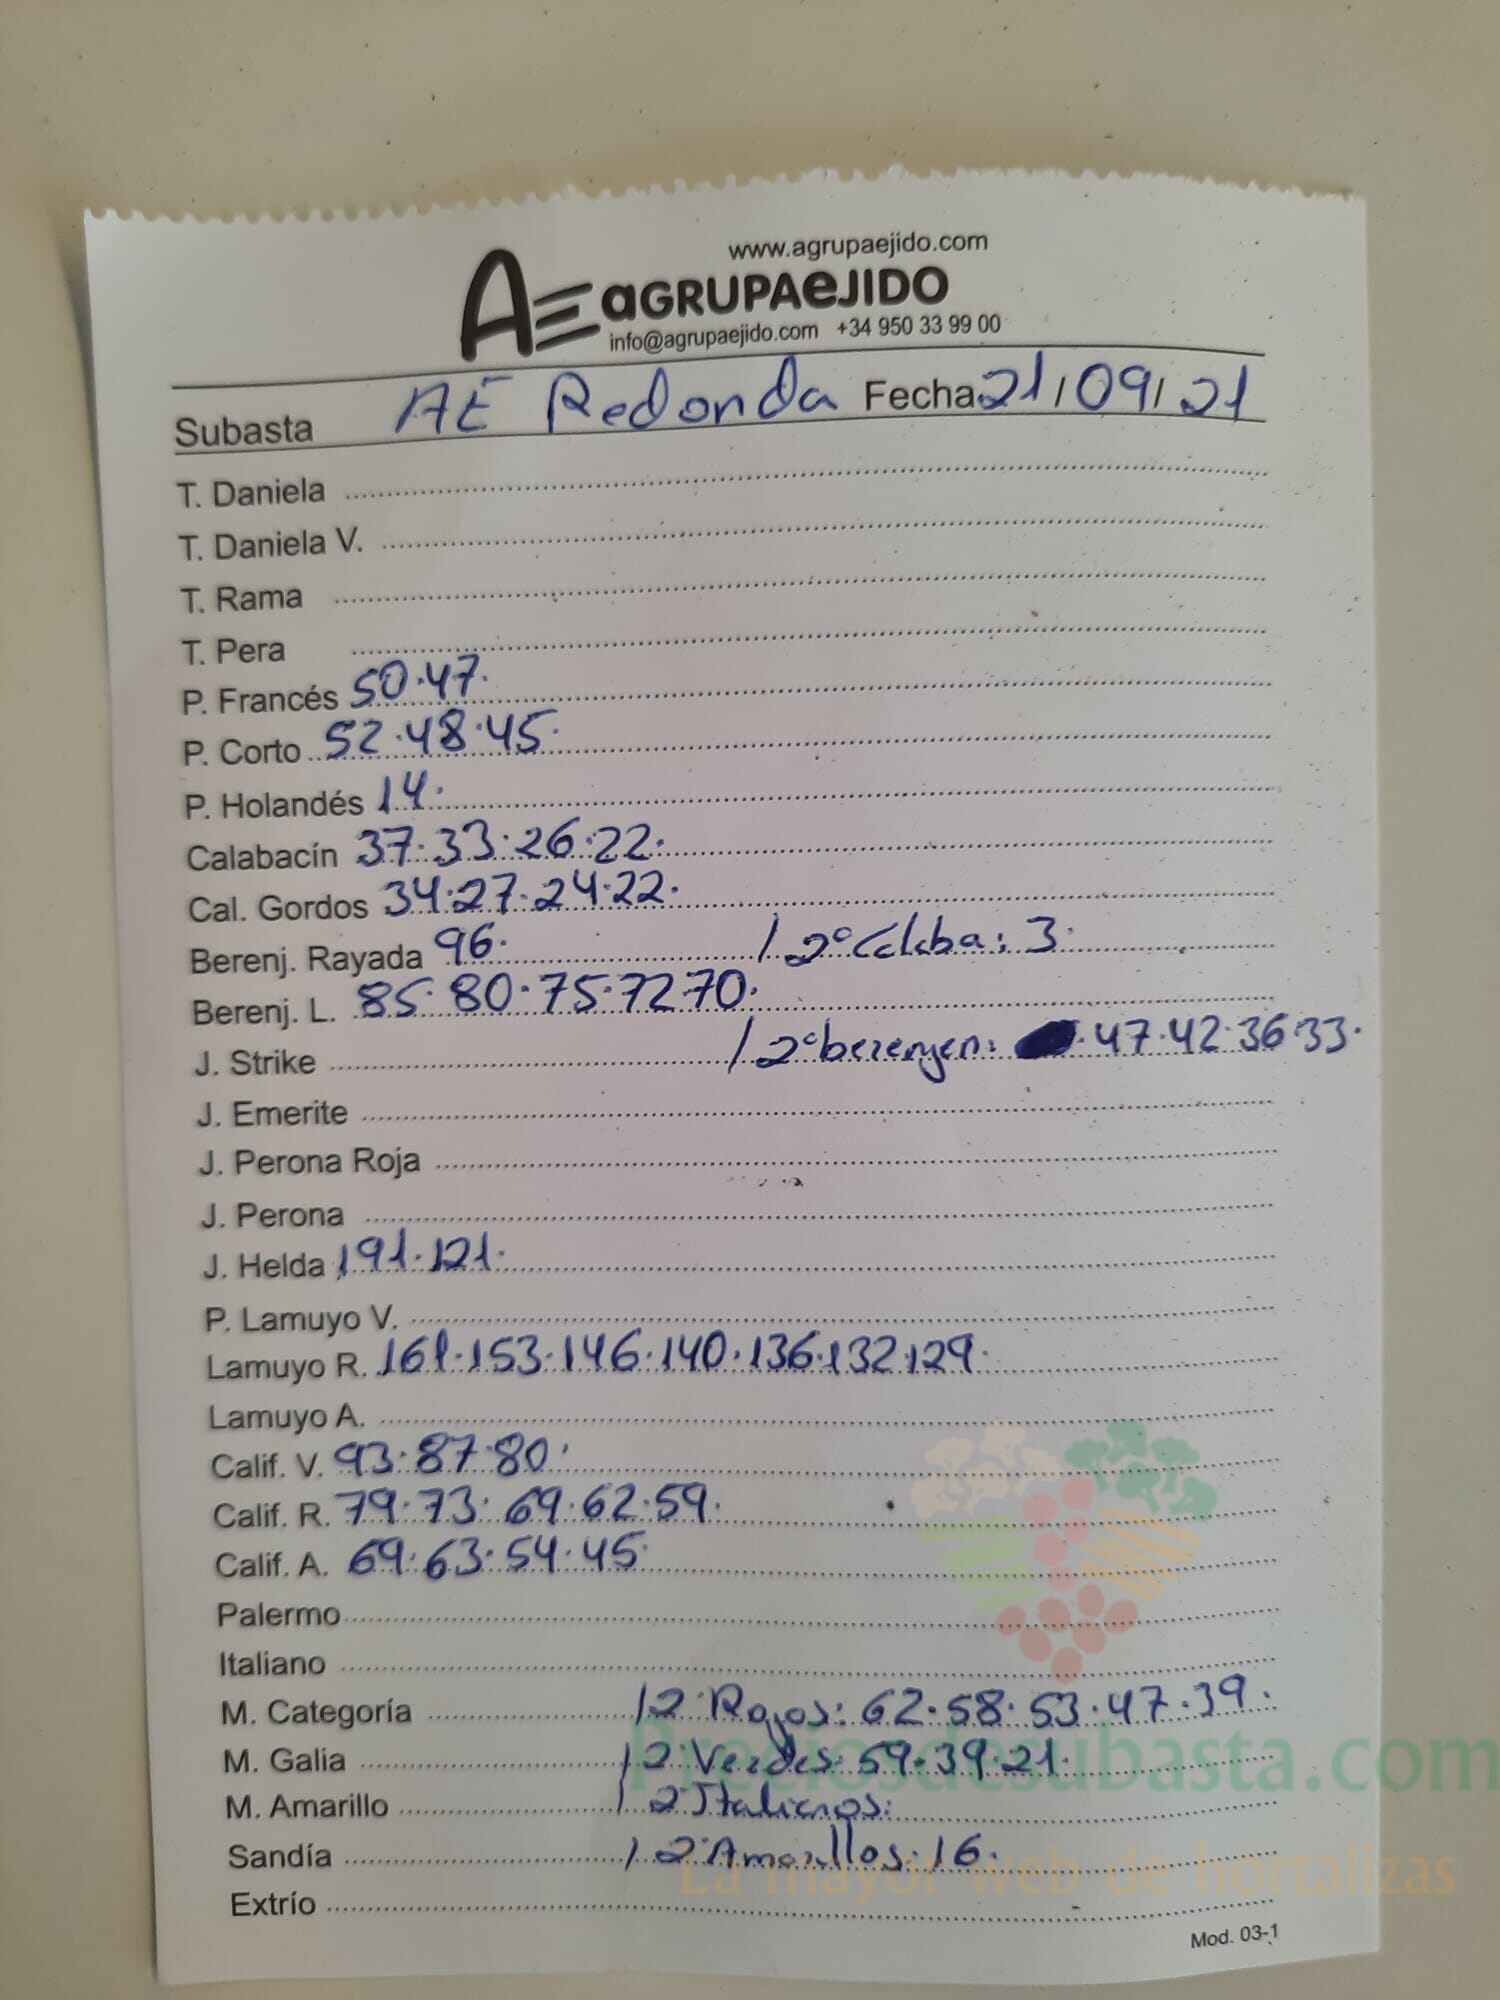 www.agrupaejido.com
AE aGRUPAeJIDO
info@agrupaejido.com +34 950 33 99 00
Subasta AE Redonda Fecha 21/09/21
T. Daniela
T. Daniela V.
T. Rama
T. Pera
P. Francés 50.47.
P. Corto 52.48.45.
P. Holandés 14.
Calabacín 37.33.26.22.
Cal. Gordos 34.27.24.22.
Berenj. Rayada 96. / 2º Calaba: 3.
Berenj. L. 85.80.75.72.70.
J. Strike / 2º berenjen: .47.42.36.33.
J. Emerite
J. Perona Roja
J. Perona
J. Helda 191.121.
P. Lamuyo V.
Lamuyo R. 161.153.146.140.136.132.129.
Lamuyo A.
Calif. V. 93.87.80.
Calif. R. 79.73.69.62.59.
Calif. A. 69.63.54.45.
Palermo
Italiano
M. Categoría / 2º Rojos: 62.58.53.47.39.
M. Galia / 2º Verdes: 59.39.21.
Preciosdesubasta.com
M. Amarillo / 2º Italianos:
Sandía / 2º Amarillos: 16.
La mayor web de hortalizas
Extrío
Mod. 03-1